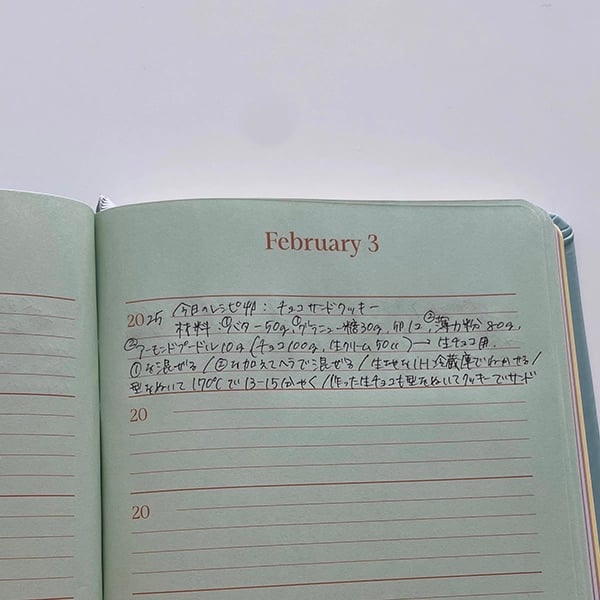 February 3
2025 今日のレシピ🍪: チョコサンドクッキー
材料: ①バター50g, ①グラニュー糖30g, 卵1コ, ②薄力粉80g,
②アーモンドプードル10g (チョコ100g, 生クリーム50cc) → 生チョコ用.
①を混ぜる / ②を加えてヘラで混ぜる / 生地を1H冷蔵庫でねかせる /
型をぬいて170℃で13-15分やく / 作った生チョコも型をぬいてクッキーでサンド
20
20